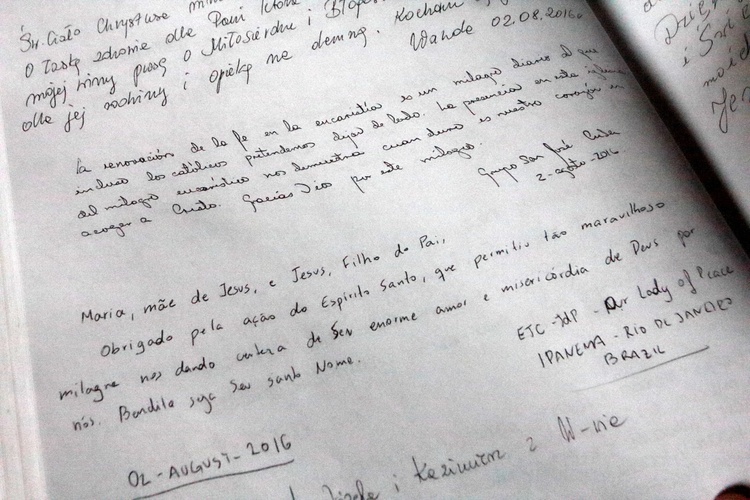 Św. Ciało Chrystusa
O łaskę zdrowia dla Pani
mojej winny proszę o Miłosierdzie i Błogosł
dla jej rodziny i opiekę na demną. Kocham
Wanda 02.08.2016
la renovación de la fe en la eucaristía es un milagro diario al que
incluso los católicos pretendemos dejar de lado. La presencia en esta iglesia
del milagro eucarístico nos demuestra cuan duro es nuestro corazón en
acoger a Cristo. Gracias Dios por este milagro.
Grupo San José Cuba
2-agosto-2016
Maria, mãe de Jesus, e Jesus, Filho do Pai,
Obrigado pela ação do Espírito Santo, que permitiu tão maravilhoso
milagre nos dando certeza de Seu enorme amor e misericórdia de Deus por
nós. Bendito seja Seu santo Nome.
EJC - - Our Lady of Peace
IPANEMA - RIO DE JANEIRO
BRAZIL
02 - AUGUST - 2016
i Kazimierz z W-nie